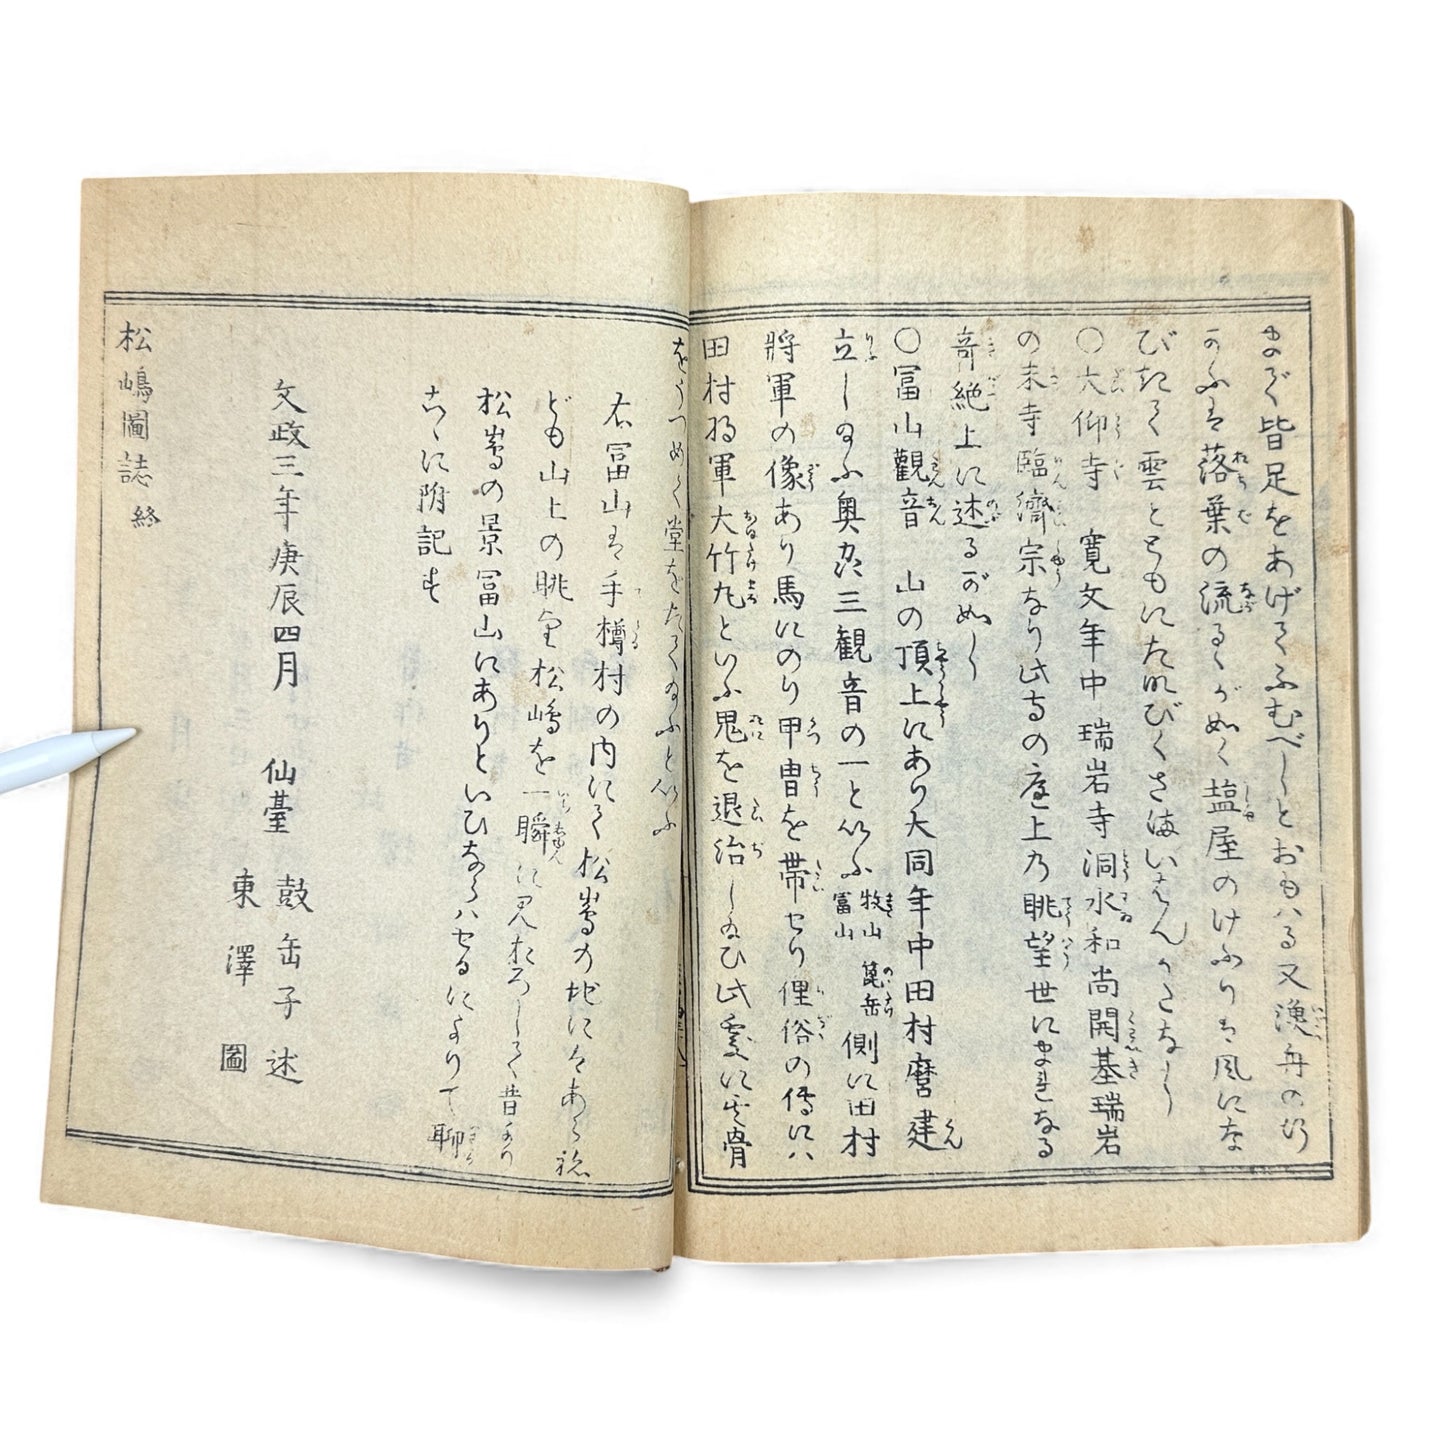 まで皆足をあげてふむべしとおもハる又漁舟の行
かふは落葉の流るゝが如く塩屋のけふりは風にな
びきて雲とともにたなびくさまいはんかたなし
〇大仰寺 寛文年中瑞岩寺洞水和尚開基瑞岩
の末寺臨濟宗なり此寺の庭上の眺望世にまれなる
奇絶上に述るがごとし
〇冨山觀音 山の頂上にあり大同年中田村麿建
立し給ふ奥州三観音の一といふ牧山 箟岳 冨山側に田村
將軍の像あり馬にのり甲冑を帯せり俚俗の傳にハ
田村将軍大竹丸といふ鬼を退治し給ひ此處に其骨
をうづめて堂をたて給ふといふ
右冨山は手樽村の内にて松嶌の地にはあらね
ども山上の眺望松嶋を一瞬に見おろして昔より
松嶌の景冨山にありといひならハせるによりて聊
こゝに附記す
文政三年庚辰四月 仙臺 鼓缶子述
東澤圖
松嶋圖誌終